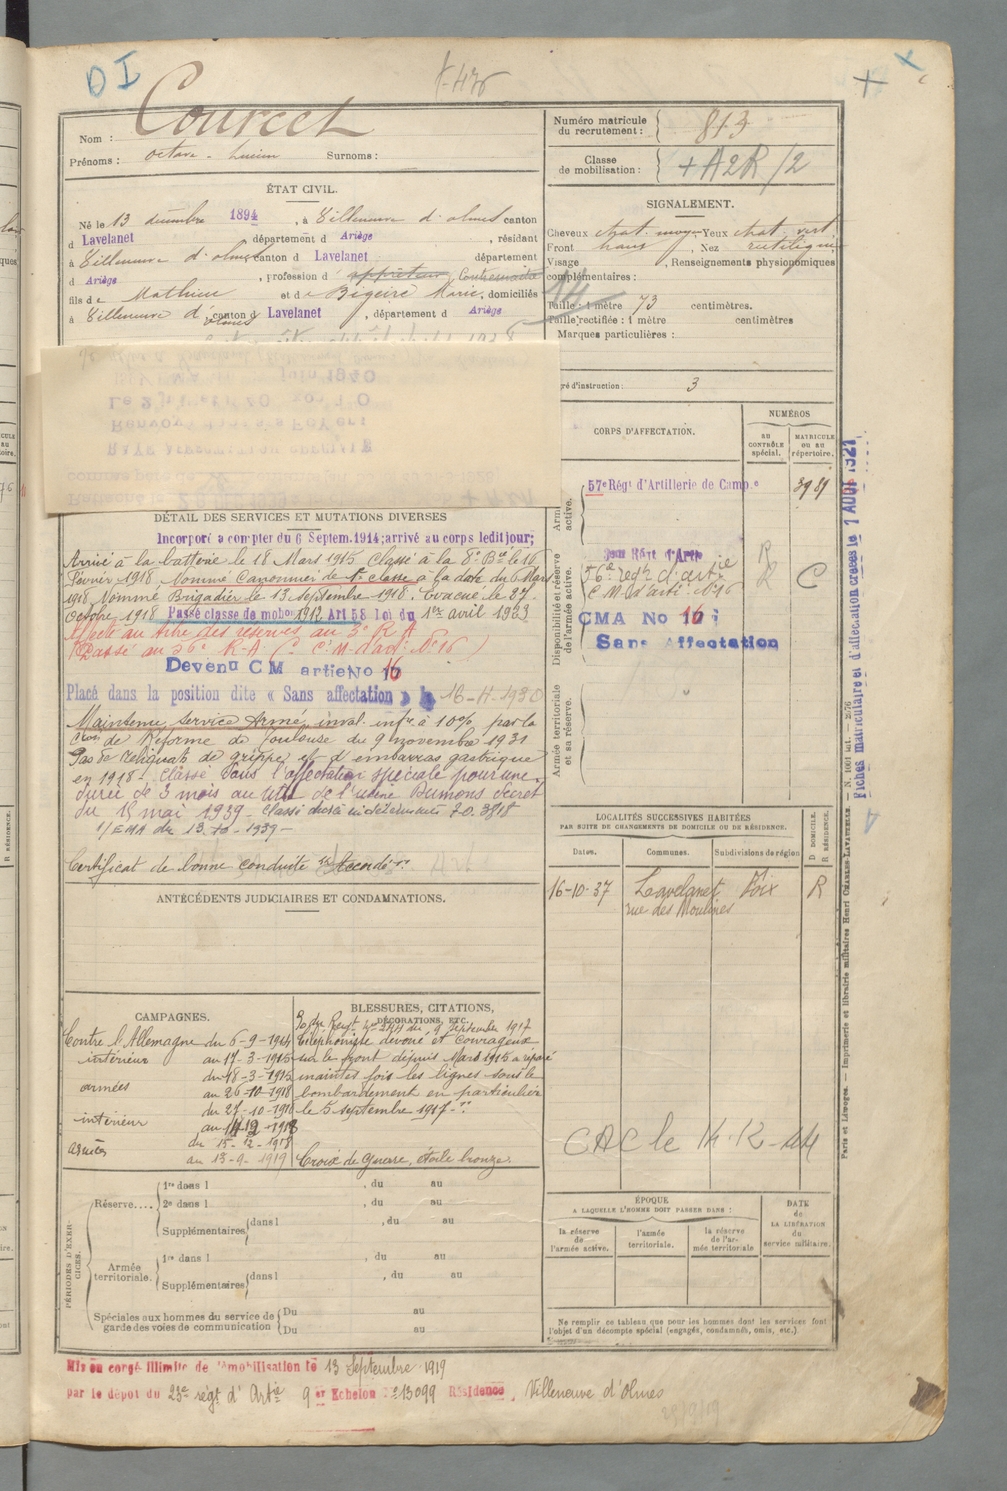 D I
Courcet
Nom :
Prénoms : Octave - Lucien Surnoms :
Numéro matricule du recrutement : 813
Classe de mobilisation : + A2R/2
ÉTAT CIVIL.
Né le 13 décembre 1894, à Villeneuve d'olmes canton
d Lavelanet département d Ariège, résidant
à Villeneuve d'olmes canton d Lavelanet département
d Ariège, profession d' apprêteur, Contremaître
fils de Mathieu et de Bigeire Marie, domiciliés
à Villeneuve d'olmes canton d Lavelanet, département d Ariège
SIGNALEMENT.
Cheveux chat. moy. Yeux chat. vert
Front haut, Nez rectiligne
Visage , Renseignements physionomiques
complémentaires :
Taille : 1 mètre 73 centimètres.
Taille rectifiée : 1 mètre centimètres
Marques particulières :
gré d'instruction : 3
CORPS D'AFFECTATION.
NUMÉROS
AU CONTRÔLE spécial.
MATRICULE OU AU répertoire.
57e Régt d'Artillerie de Camp.e
56e regt d'artie
C.M. d'arti. No 16
R
R
C
CMA No 16 ;
Sans Affectation
Disponibilité et réserve de l'armée active.
Armée territoriale et sa réserve.
DÉTAIL DES SERVICES ET MUTATIONS DIVERSES
Incorporé à compter du 6 Septem. 1914; arrivé au corps ledit jour;
Arrivé à la batterie le 18 Mars 1915 Classé à la 8e Bie le 16
Février 1918 Nommé Canonnier de 1e classe à la date du 6 Mars
1918 Nommé Brigadier le 13 septembre 1918. Évacué le 27
octobre 1918 Passé classe de mobon 1912 Art 58 loi du 1er avril 1923
Affecté au titre des réserves au 3e R A
Passé au 56e R.A. (C.M. d'art. No 16)
Devenu CM artie No 16
Placé dans la position dite « Sans affectation » le 16-4-1930
Maintenu Service Armé inval. infre à 10% par la
Cion de Réforme de Toulouse du 9 novembre 1931
Pas de reliquats de grippe et d'embarras gastrique
en 1918. Classé dans l'affectation spéciale pour une
durée de 3 mois au titre de l'usine Dumons Secret
du 15 mai 1939 - Classé durée indéterminée
1/EMA du 13-10-1939 -
Certificat de bonne conduite "Accordé".
ANTÉCÉDENTS JUDICIAIRES ET CONDAMNATIONS.
LOCALITÉS SUCCESSIVES HABITÉES
PAR SUITE DE CHANGEMENTS DE DOMICILE OU DE RÉSIDENCE.
Dates. Communes. Subdivisions de région D DOMICILE. R RÉSIDENCE.
16-10-37 Lavelanet Foix R
rue des Moulines
CAC le 14-12-44
CAMPAGNES.
Contre l'Allemagne du 6-9-1914
intérieur au 17-3-1915
du 18-3-1915
armées au 26-10-1918
du 27-10-1918
intérieur au 14-12-1918
du 15-12-1918
armées au 13-9-1919
BLESSURES, CITATIONS, DÉCORATIONS, ETC.
O/du Regt No 244 du 9 Septembre 1917
Téléphoniste dévoué et courageux
sur le front depuis Mars 1915 a réparé
maintes fois les lignes sous le
bombardement en particulier
le 5 septembre 1917.
Croix de Guerre, étoile bronze.
PÉRIODES D'EXERCICES.
Réserve.... 1re dans l , du au
2e dans l , du au
Supplémentaires dans l , du au
Armée territoriale. 1re dans l , du au
Supplémentaires dans l , du au
Spéciales aux hommes du service de garde des voies de communication Du au
Du au
ÉPOQUE
A LAQUELLE L'HOMME DOIT PASSER DANS :
la réserve de l'armée active.
l'armée territoriale.
la réserve de l'armée territoriale
DATE de LA LIBÉRATION du service militaire.
Ne remplir ce tableau que pour les hommes dont les services font
l'objet d'un décompte spécial (engagés, condamnés, omis, etc.).
Mis en congé illimité de démobilisation le 13 Septembre 1919
par le dépôt du 23e régt d'Artie 9er Echelon No 13099 Résidence, Villeneuve d'Olmes
Fiches matriculaire et d'affectation créées le 1 AOUT 1927
Paris et Limoges. — Imprimerie et librairie militaires Henri CHARLES-LAVAUZELLE.